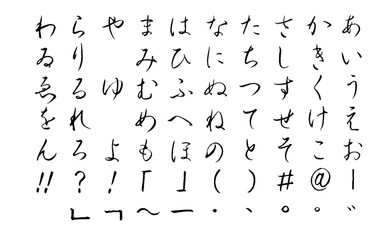 あいうえお|゛
かきくけこ@゜
さしすせそ#。
たちつてと)、
なにぬねの(・
はひふへほ」ー
まみむめも「〜
やゆよ!﹁
らりるれろ?﹂
わゐゑをん!!